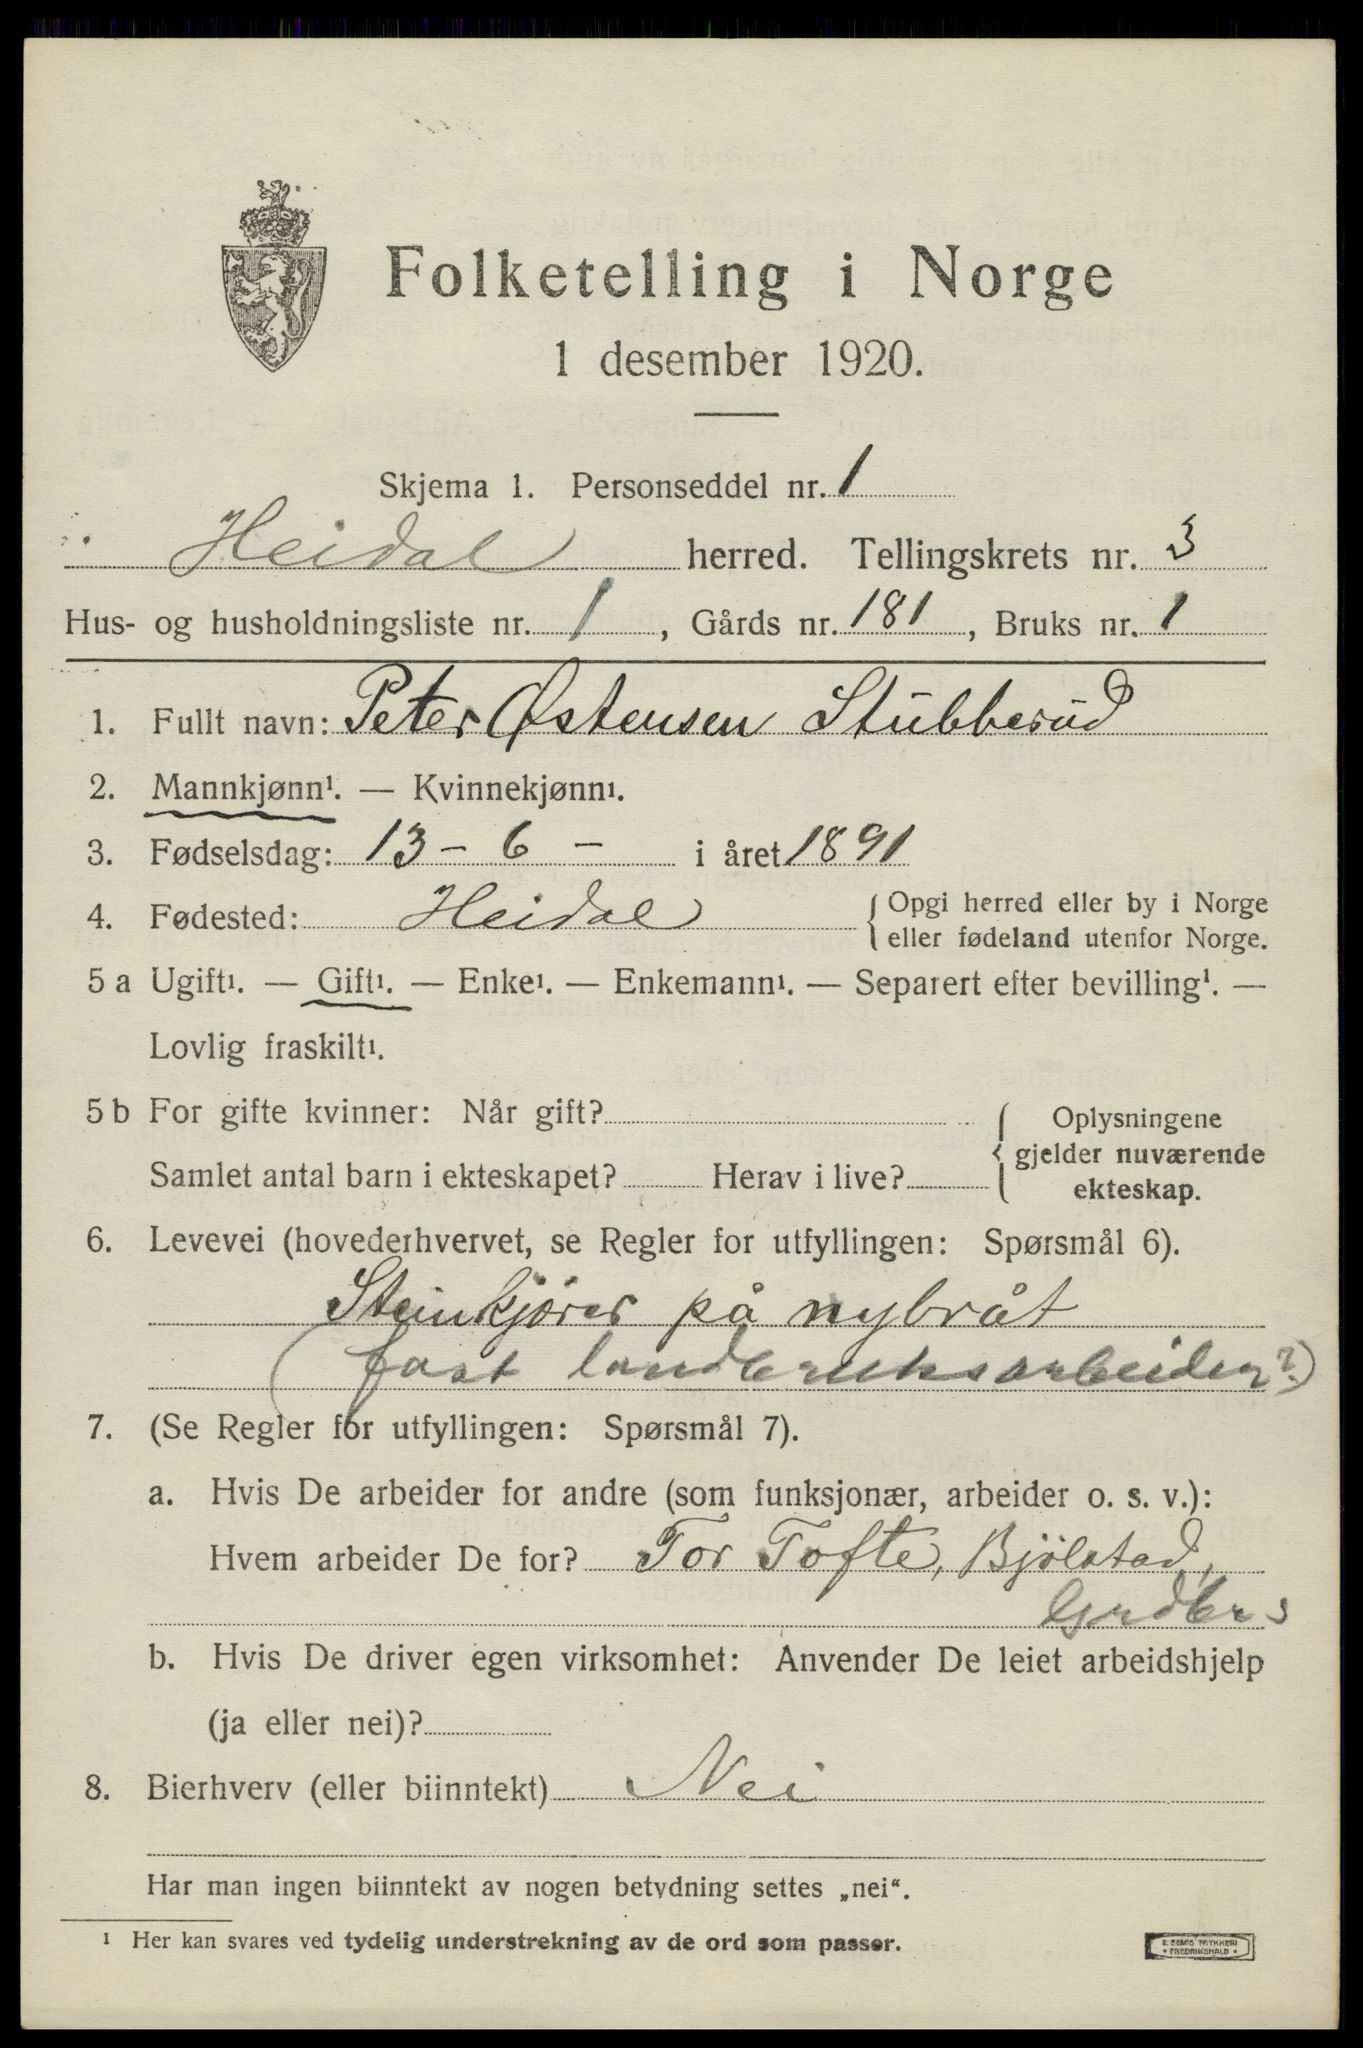 Folketelling i Norge
1 desember 1920.
Skjema 1. Personseddel nr. 1
Heidal herred. Tellingskrets nr. 3
Hus- og husholdningsliste nr. 1, Gårds nr. 181, Bruks nr. 1
1. Fullt navn: Peter Østensen Stubberud
2. Mannkjønn¹. — Kvinnekjønn¹.
3. Fødselsdag: 13 – 6 – i året 1891
4. Fødested: Heidal { Opgi herred eller by i Norge
eller fødeland utenfor Norge.
5 a Ugift¹. — Gift¹. — Enke¹. — Enkemann¹. — Separert efter bevilling¹. —
Lovlig fraskilt¹.
5 b For gifte kvinner: Når gift?
Samlet antal barn i ekteskapet? Herav i live?
{ Oplysningene
gjelder nuværende
ekteskap.
6. Levevei (hovederhvervet, se Regler for utfyllingen: Spørsmål 6).
Steinkjører på nybråt
(fast landbruksarbeider?)
7. (Se Regler for utfyllingen: Spørsmål 7).
a. Hvis De arbeider for andre (som funksjonær, arbeider o. s. v.):
Hvem arbeider De for? Tor Tofte, Bjölstad,
Grdbrs
b. Hvis De driver egen virksomhet: Anvender De leiet arbeidshjelp
(ja eller nei)?
8. Bierhverv (eller biinntekt) Nei
Har man ingen biinntekt av nogen betydning settes „nei“.
¹ Her kan svares ved tydelig understrekning av de ord som passer.
E. SEM'S TRYKKERI
• FREDRIKSHALD •